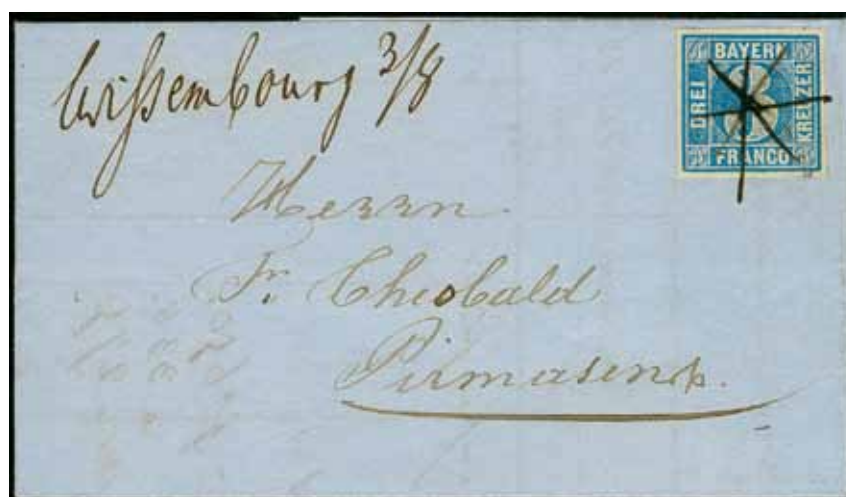 Wissembourg 3/8
BAYERN
DREI
3
KREUZER
FRANCO
Herrn
Fr. Theobald
Pirmasens.